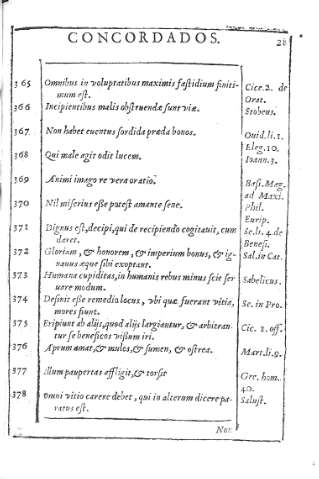 CONCORDADOS. 28
365 Omnibus in voluptatibus maximis fastidium finiti- Cice. 2. de
mum est. Orat.
366 Incipientibus malis obstruendæ sunt viæ. Stobeus.
367 Non habet euentus sordida præda bonos. Ouid. li. 1.
Eleg. 10.
368 Qui male agit odit lucem. Ioann. 3.
369 Animi imago re vera oratio. Basi. Mag.
ad Maxi.
370 Nil miserius esse potest amante sene. Phil.
Eurip.
371 Dignus est, decipi, qui de recipiendo cogitauit, cum Se. li. 4. de
daret. Benefi.
372 Gloriam, & honorem, & imperium bonus, & ig- Sal. in Cat.
nauus æque sibi exoptant.
373 Humana cupiditas, in humanis rebus minus scie ser Sabelicus.
uare modum.
374 Definit esse remedio locus, vbi quæ fuerant vitia, Se. in Pro.
mores fiunt.
375 Eripiunt ab alijs, quod alijs largiantur, & arbitran- Cic. 2. off.
tur se beneficos visum iri.
376 Aprum amat, & mules, & sumen, & ostrea. Mart. li. 9.
377 Illum paupertas affligit, & torsit Gre. hom.
40.
378 omni vitio carere debet, qui in alterum dicere pa- Salust.
ratus est.
Non